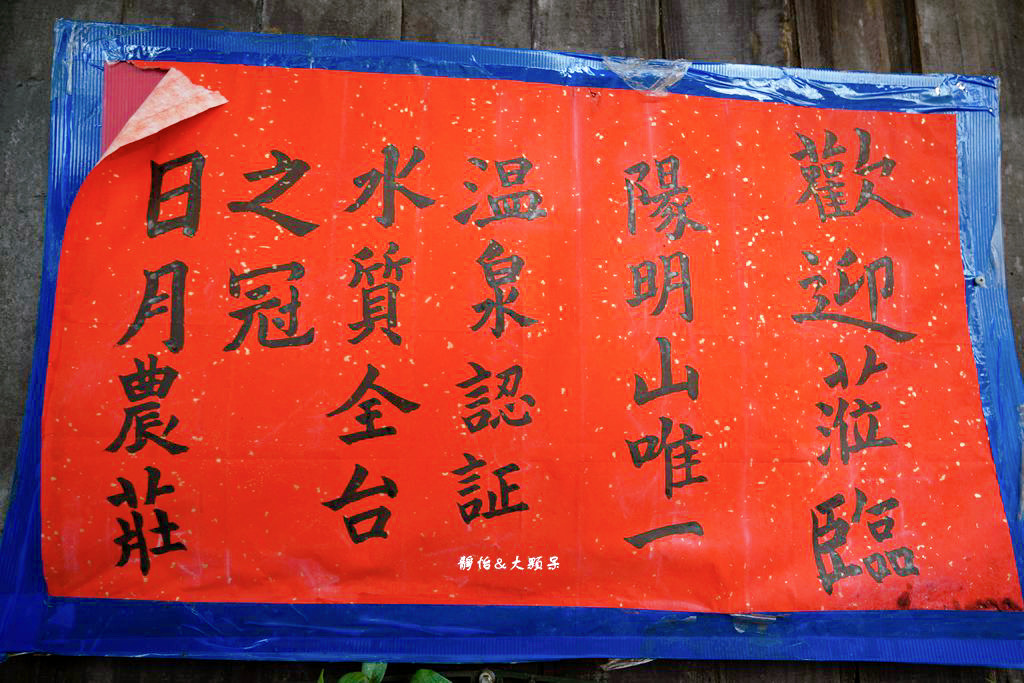 歡迎蒞臨
陽明山唯一
温泉認証
水質全台
之冠
日月農莊
靜怡&大顆呆